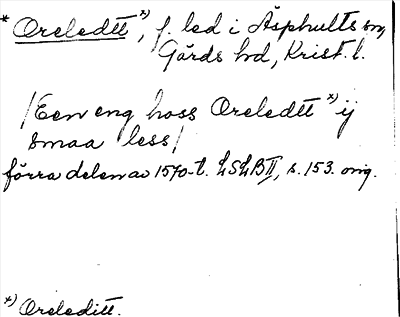 * Oreledtt x), f. led i Äsphults sn,
Gärds hd, Krist. l.
/Een eng hoss Oreledtt x) ij
smaa less/
förra delen av 1570-t. LSLB II, s. 153. orig.
x) Oreleditt.